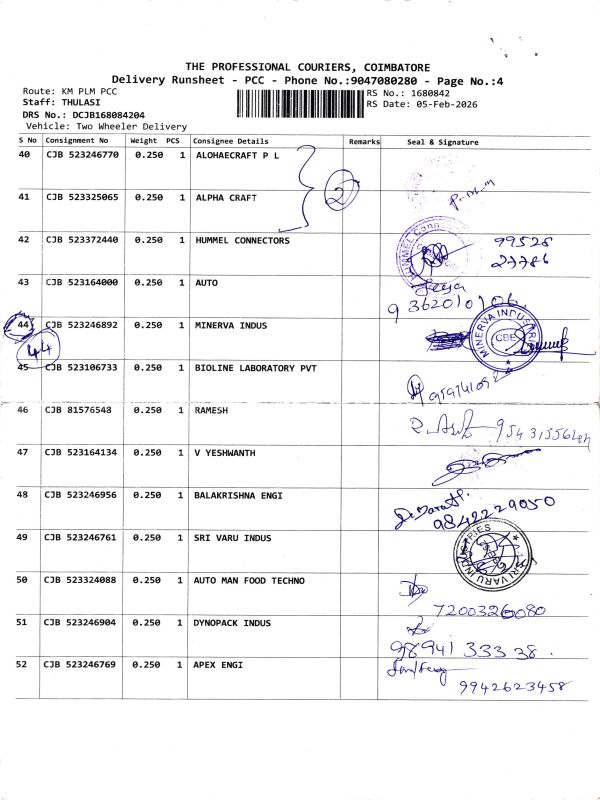 THE PROFESSIONAL COURIERS, COIMBATORE
Delivery Runsheet - PCC - Phone No.:9047080280 - Page No.:4
Route: KM PLM PCC
RS No.: 1680842
Staff: THULASI
RS Date: 05-Feb-2026
DRS No.: DCJB168084204
Vehicle: Two Wheeler Delivery
S No Consignment No Weight PCS Consignee Details Remarks Seal & Signature
40 CJB 523246770 0.250 1 ALOHAECRAFT P L
2
41 CJB 523325065 0.250 1 ALPHA CRAFT
42 CJB 523372440 0.250 1 HUMMEL CONNECTORS 99528
27786
43 CJB 523164000 0.250 1 AUTO
9362010106
44 CJB 523246892 0.250 1 MINERVA INDUS MINERVA INDUSTRIES CBE
44
45 CJB 523106733 0.250 1 BIOLINE LABORATORY PVT
46 CJB 81576548 0.250 1 RAMESH
47 CJB 523164134 0.250 1 V YESHWANTH
48 CJB 523246956 0.250 1 BALAKRISHNA ENGI
9842229050
49 CJB 523246761 0.250 1 SRI VARU INDUS SRI VARU INDUSTRIES
50 CJB 523324088 0.250 1 AUTO MAN FOOD TECHNO
7200326080
51 CJB 523246904 0.250 1 DYNOPACK INDUS
98941 333 38.
52 CJB 523246769 0.250 1 APEX ENGI
9942623458